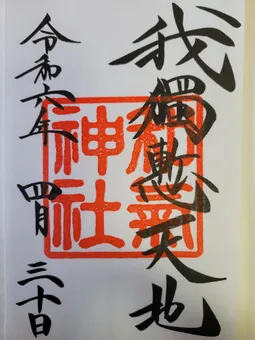 我獨慙天地
和氣
神社
令和六年 四月 三十日